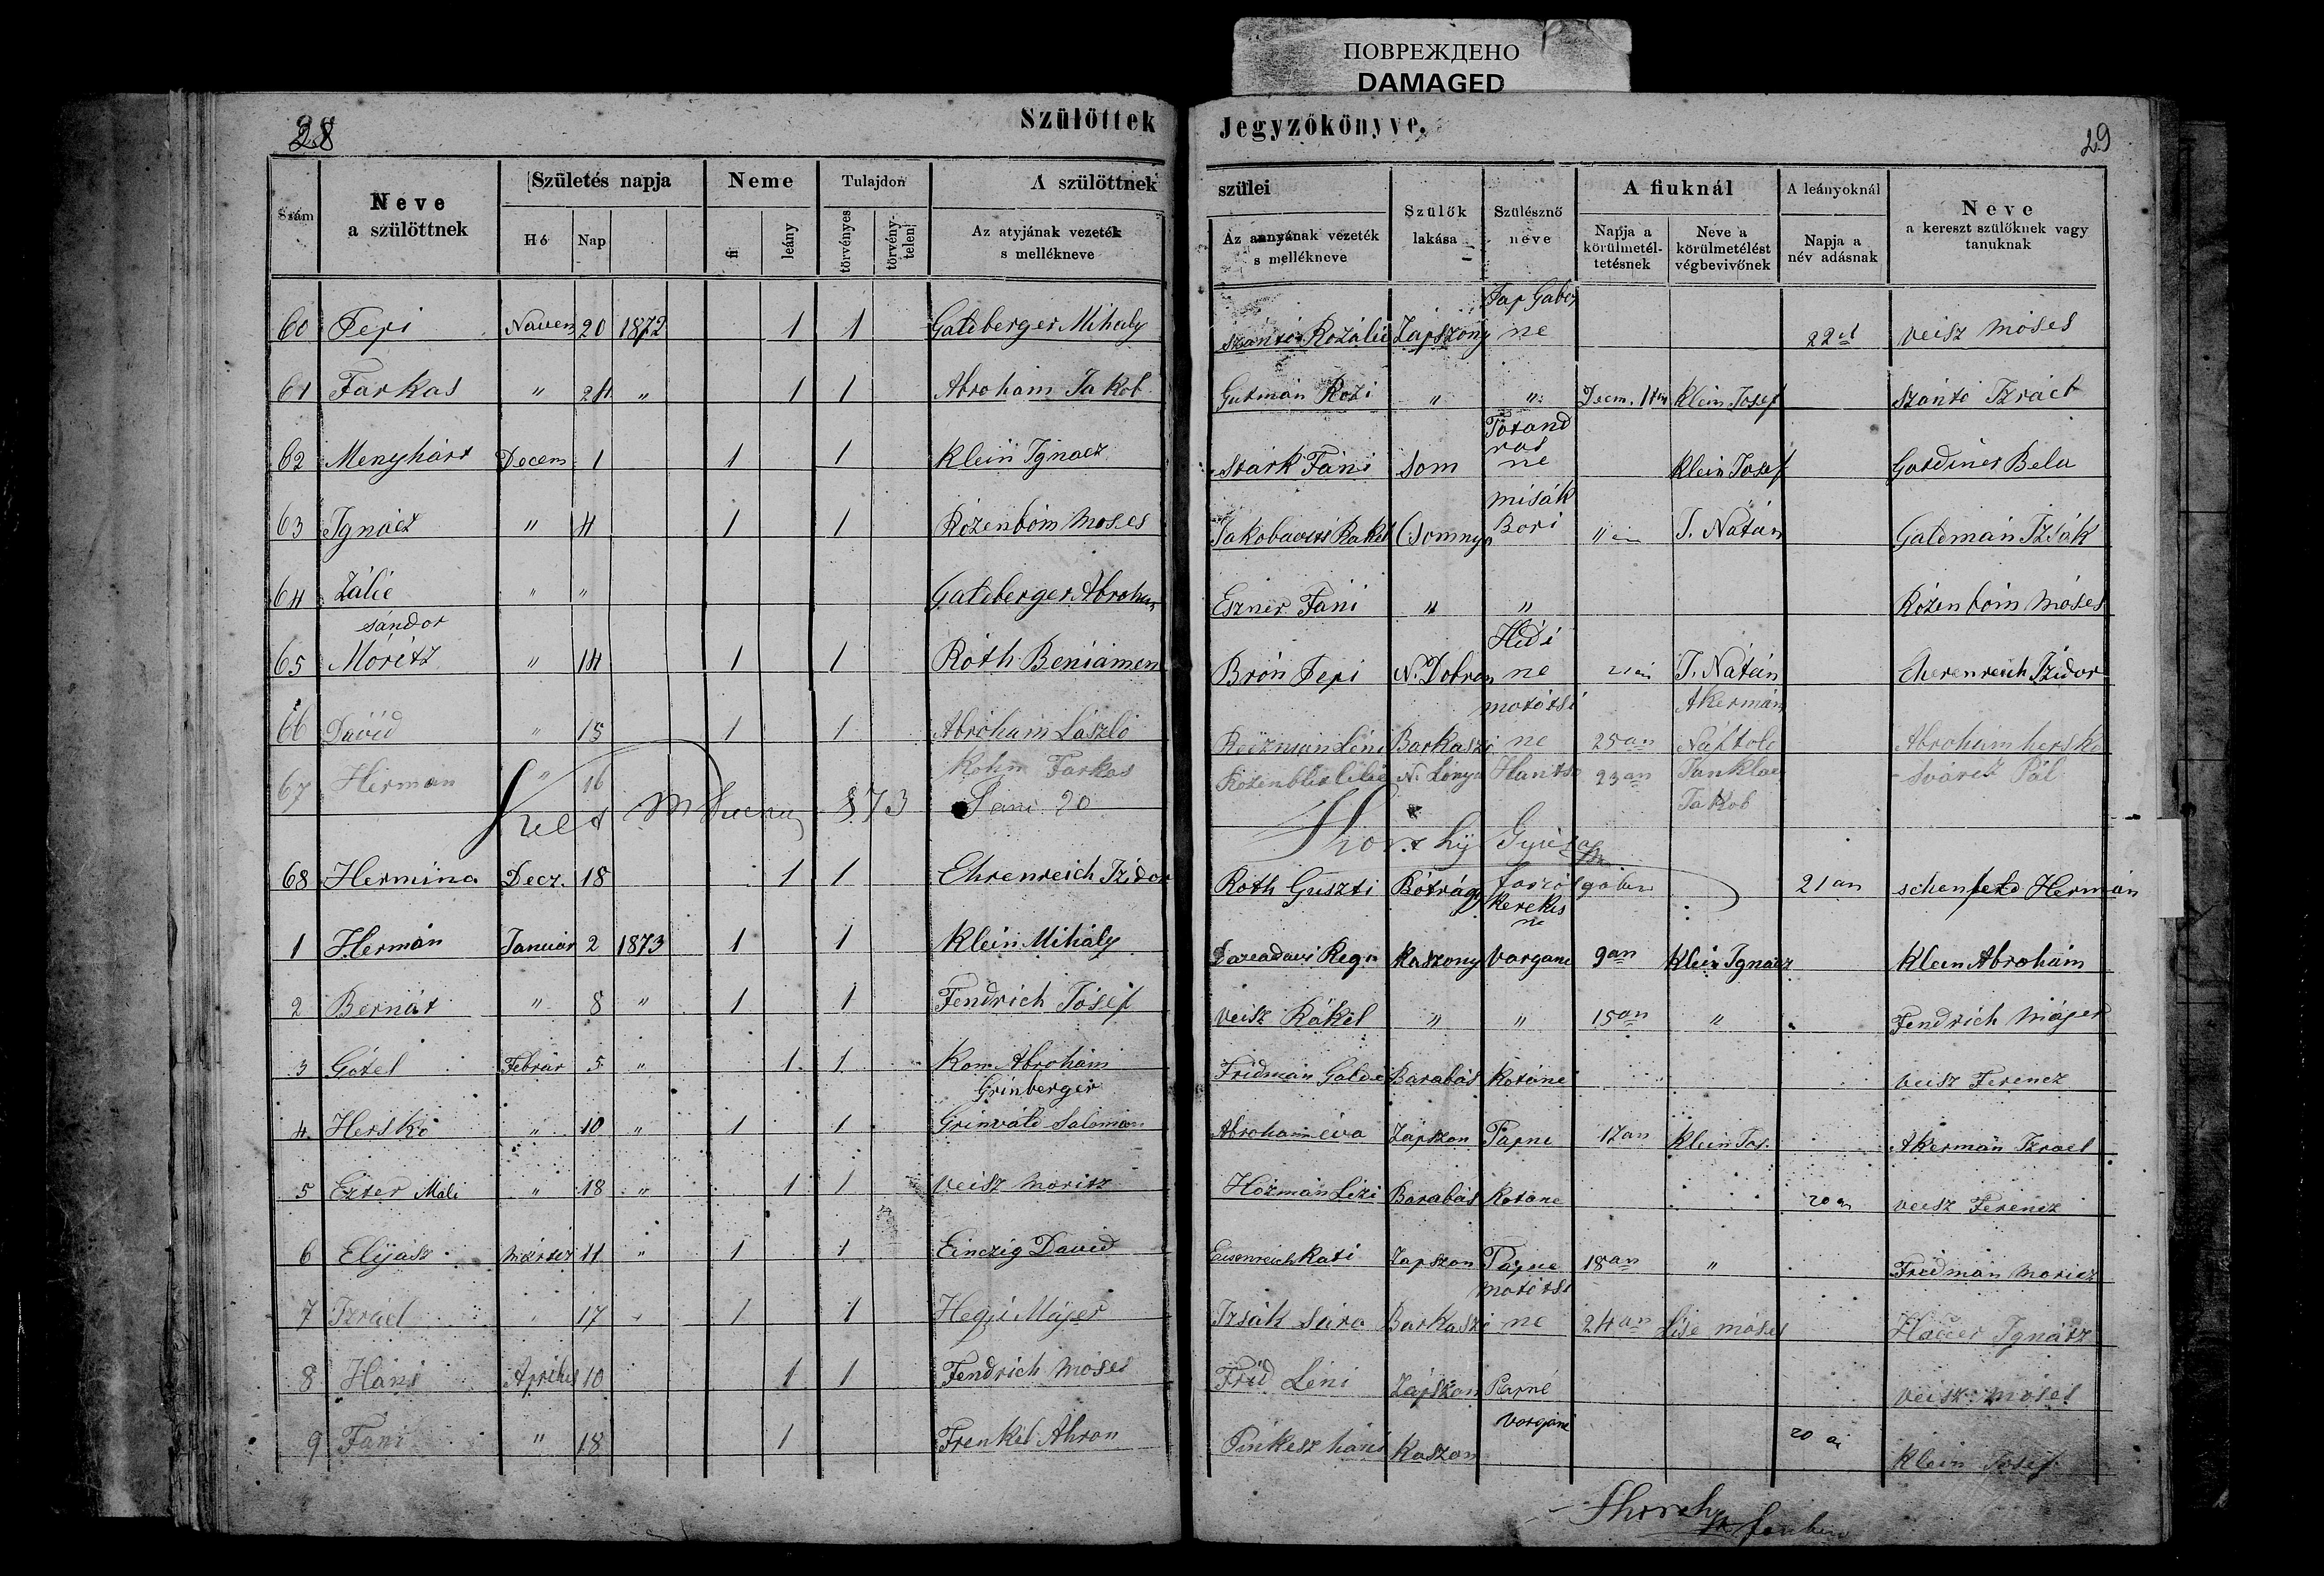 ПОВРЕЖДЕНО
DAMAGED
28
Szülöttek
Jegyzőkönyve.
29
Szám
Neve a szülöttnek
Születés napja
Hó Nap
Neme
fi leány
Tulajdon
törvényes törvénytelen
A szülöttnek
Az atyjának vezeték s mellékneve
szülei
Az annyának vezeték s mellékneve
Szülők lakása
Szülésznő neve
A fiuknál
Napja a körülmetél-tetésnek
Neve a körülmetélést végbevivőnek
A leányoknál
Napja a név adásnak
Neve a kereszt szülőknek vagy tanuknak
60 Fepi Novem 20 1872 1 1 Galdberger Mihaly Szántó Rozália Zapszony Pap Gabor ne 22 Veisz Moses
61 Farkas " 24 " 1 1 Abroham Jakob Gutmán Rozi " " Decm. Klein Josef Szántó Izrael
62 Menyhárt Decem 1 1 1 Klein Ignacz Stark Fáni Som Totand ras ne Klein Josef Goldiner Bela
63 Ignácz " 4 1 1 Rozenbóm Moses Jakobavits Rakel Csomnya misák Bori " J. Nátán Galdmán Izsák
64 Zálié " " Galdberger Abroham Eszner Fáni " " Rozenbóm Móses
65 sándor Móritz " 14 1 1 Róth Beniámen Brón Fepi N. Dobron Hidi ne 21 J. Nátán Eherenreich Izidor
66 Dávid " 15 1 1 Abrohám László Reizman Léni Barkaszó motótsi ne 25an Akermán Náftole Abrohám hersko
67 Herman " 16 Kohn Farkas N. Lónya 23an Jakob Svarcz Pál
873 20
68 Hermina Decz. 18 1 1 Ehrenreich Izidor Roth Guszti Bótrágy kerekes ne 21an schenfeld Hermán
1 Hermán Január 2 1873 1 1 Klein Mihály Regi Kaszony Vargane 9an Klein Ignácz Klein Abrohám
2 Bernát " 8 " 1 1 Fendrich Jósef Veisz Rákel " " 15an " Fendrich Májer
3 Gótel Febrár 5 " 1 1 Kom Abrohám Fridmán Galdi Barabás Kotáné Veisz Ferencz
4 Herskó " 10 " 1 1 Grinberger Grinváld Salomon Abroham éva Zápszon Papne 17an Klein Jos. Akermán Izrael
5 Ezter Máli " 18 " 1 1 Veisz Moritz Hozmán Lizi Barabás Kotane 20 Veisz Ferencz
6 Elijász Mártcz 11 " 1 1 Einczig David Eisenreich Kati Zapszon Papne 18an " Fridmán Moricz
7 Izráel " 17 " 1 1 Hegji Májer Izsák Sára Barkaszó motótsi ne 24an Lise móses Ignátz
8 Háni Április 10 1 1 Fendrich Móses Frid Léni Zápszon Papné Veisz Móses
9 Fáni " 18 1 Frenkel Ahron Pinkesz háni Kaszon Vargáné 20 Klein Josef